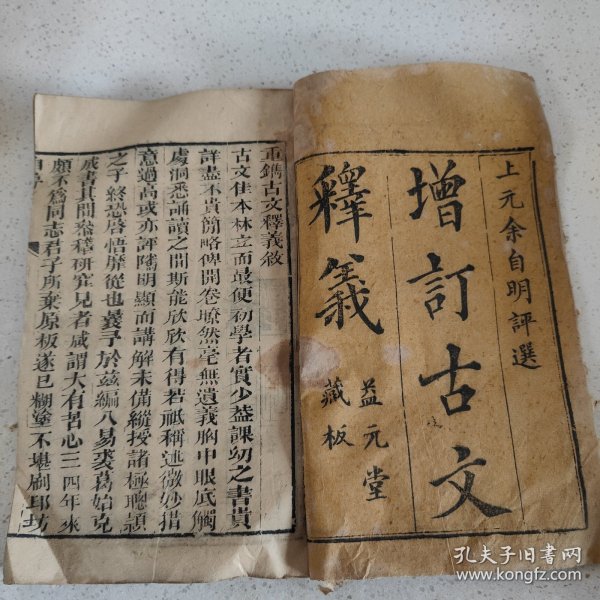 上元余自明評選
增訂古文
釋義
益元堂
藏板
重鐫古文釋義敘
古文佳本林立而最便初學者實少蓋課幼之書貴
詳盡不貴簡略俾開卷瞭然毫無遺義胸中眼底觸
處洞悉誦讀之間斯能欣欣有得若祗稱述微妙措
意過高或亦評隲明顯而講解未備縱授諸極聰穎
之子終恐啓悟靡從也曩予於茲編八易裘葛始克
成書其間叅稽研究見者咸謂大有苦心三四年來
頗不爲同志君子所棄原板遂已糊塗不堪刷印坊
自序
孔夫子旧书网
www.kongfz.com